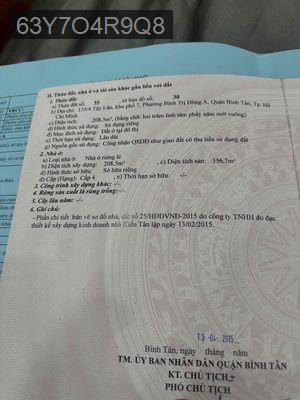 63Y7O4R9Q8
II. Thửa đất, nhà ở và tài sản khác gắn liền với đất
1. Thửa đất:
a) Thửa đất số: 35 , tờ bản đồ số: 30
b) Địa chỉ: 135/4 Tây Lân, khu phố 7, Phường Bình Trị Đông A, Quận Bình Tân, Tp. Hồ
Chí Minh
c) Diện tích: 208,5m², (bằng chữ: hai trăm linh tám phẩy năm mét vuông)
d) Hình thức sử dụng: Sử dụng riêng
đ) Mục đích sử dụng: Đất ở tại đô thị
e) Thời hạn sử dụng: Lâu dài
g) Nguồn gốc sử dụng: Công nhận QSDĐ như giao đất có thu tiền sử dụng đất
2. Nhà ở:
a) Loại nhà ở: Nhà ở riêng lẻ
b) Diện tích xây dựng: 208,5m² , c) Diện tích sàn: 356,7m²
d) Hình thức sở hữu: Sở hữu riêng
đ) Cấp (Hạng): Cấp 4 , e) Thời hạn sở hữu: -/-
3. Công trình xây dựng khác: -/-
4. Rừng sản xuất là rừng trồng: -/-
5. Cây lâu năm: -/-
6. Ghi chú:
- Phần chi tiết bản vẽ sơ đồ nhà, đất số 25/HDDVND-2015 do công ty TNHH đo đạc
thiết kế xây dựng kinh doanh nhà Kiến Tân lập ngày 13/02/2015.
13-04-2015
Bình Tân, ngày tháng năm
TM. ỦY BAN NHÂN DÂN QUẬN BÌNH TÂN
KT. CHỦ TỊCH
PHÓ CHỦ TỊCH